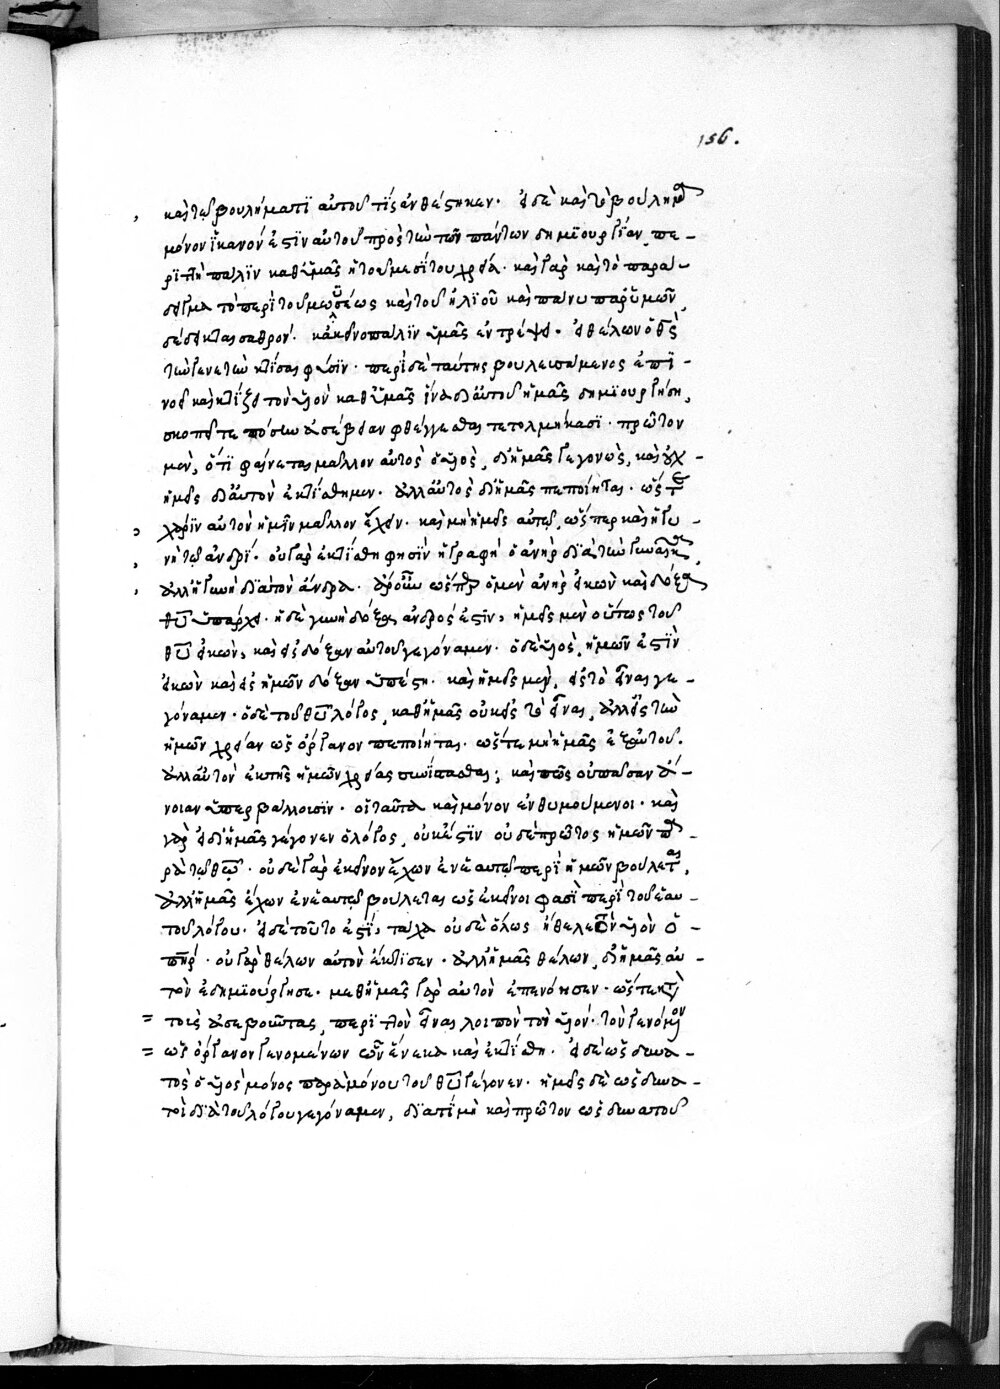 156.
καὶ τῷ βουλήματι αὐτοῦ τίς ἀνθέστηκεν· εἰ δὲ καὶ τὸ βούλημα
μόνον ἱκανόν ἐστιν αὐτοῦ πρὸς τὴν τῶν πάντων δημιουργίαν, πε-
ριττὴ πάλιν καθ' ὑμᾶς ἡ τοῦ μεσίτου χρεία· καὶ γὰρ καὶ τὸ παρά-
δειγμα τὸ περὶ τοῦ μωυσέως καὶ τοῦ ἡλίου καὶ πάνυ παρ' ὑμῶν,
δέδεικται σαθρόν· κἀκεῖνο πάλιν ὑμᾶς ἐντρέψει· εἰ θέλων ὁ θς
τὴν γενετὴν κτίσαι φύσιν· περὶ δὲ ταύτης βουλευσάμενος ἐπι-
νοεῖ καὶ κτίζει τὸν υἱὸν καθ' ὑμᾶς ἵνα δι' αὐτοῦ ἡμᾶς δημιουργήση,
σκοπεῖτε πόσην ἀσέβειαν φθέγγεσθαι τετολμήκασι· πρῶτον
μὲν, ὅτι φαίνεται μᾶλλον αὐτὸς ὁ υἱὸς, δι' ἡμᾶς γεγονὼς, καὶ οὐχ -
ἡμεῖς δι' αὐτὸν ἐκτίσθημεν· ἀλλ' αὐτὸς δι' ἡμᾶς πεποίηται· ὥστε
χάριν αὐτὸν ἡμῖν μᾶλλον ἔχειν· καὶ μὴ ἡμεῖς αὐτῷ, ὥσπερ καὶ ἡ γυ -
νὴ τῷ ἀνδρί· οὐ γὰρ ἐκτίσθη φησὶν ἡ γραφὴ ὁ ἀνὴρ διὰ τὴν γυναῖκα,
ἀλλ' ἡ γυνὴ διὰ τὸν ἄνδρα· ἄρ' οὖν ὥσπερ ὁ μὲν ἀνὴρ εἰκὼν καὶ δόξα
θυ ὑπάρχει· ἡ δὲ γυνὴ δόξα ἀνδρός ἐστιν, ἡμεῖς μὲν οὕτως τοῦ
θυ εἰκὼν, καὶ εἰς δόξαν αὐτοῦ γεγόναμεν· ὁ δὲ υἱὸς, ἡμῶν ἐστὶν
εἰκὼν καὶ εἰς ἡμῶν δόξαν ὑπέστη· καὶ ἡμεῖς μὲν, εἰς τὸ εἶναι γε -
γόναμεν· ὁ δὲ τοῦ θυ λόγος, καθ' ἡμᾶς οὐκ εἰς τὸ εἶναι, ἀλλ' εἰς τὴν
ἡμῶν χρείαν ὡς ὄργανον πεποίηται· ὥστε μὴ ἡμᾶς ἐξ αὐτοῦ.
ἀλλ' αὐτὸν ἐκ τῆς ἡμῶν χρείας συνίστασθαι; καὶ πῶς οὐ πᾶσαν ἄ-
νοιαν ὑπερβάλλουσιν· οἱ ταῦτα καὶ μόνον ἐνθυμούμενοι· καὶ
γὰρ εἰ δι' ἡμᾶς γέγονεν ὁ λόγος, οὐκ ἔστιν οὐδὲ πρῶτος ἡμῶν πα -
ρὰ τῷ θῷ· οὐδὲ γὰρ ἐκεῖνον ἔχων ἐν ἑαυτῷ περὶ ἡμῶν βουλεύεται,
ἀλλ' ἡμᾶς ἔχων ἐν ἑαυτῷ βουλεύεται ὡς ἐκεῖνοι φασὶ περὶ τοῦ ἑαυ-
τοῦ λόγου· εἰ δὲ τοῦτο ἐστὶ, τάχα οὐδὲ ὅλως ἤθελε τὸν υἱὸν ὁ -
πηρ· οὐ γὰρ θέλων αὐτὸν ἔκτισεν· ἀλλ' ἡμᾶς θέλων, δι' ἡμᾶς αὐ -
τὸν ἐδημιούργησε· μεθ' ἡμᾶς γὰρ αὐτὸν ἐπενόησεν· ὥστε κατὰ
= τοὺς ἀσεβοῦντας, περιττὸν εἶναι λοιπὸν τὸν υἱόν· τὸν γενόμενον
= ὡς ὄργανον γενομένων ὧν ἕνεκα καὶ ἐκτίσθη· εἰ δὲ ὡς δυνα -
τὸς ὁ υἱὸς μόνος παρὰ μόνου τοῦ θυ γέγονεν· ἡμεῖς δὲ ὡς δυνα -
τοὶ διὰ τοῦ λόγου γεγόναμεν, διατὶ μὴ καὶ πρῶτον ὡς δυνατοῦ